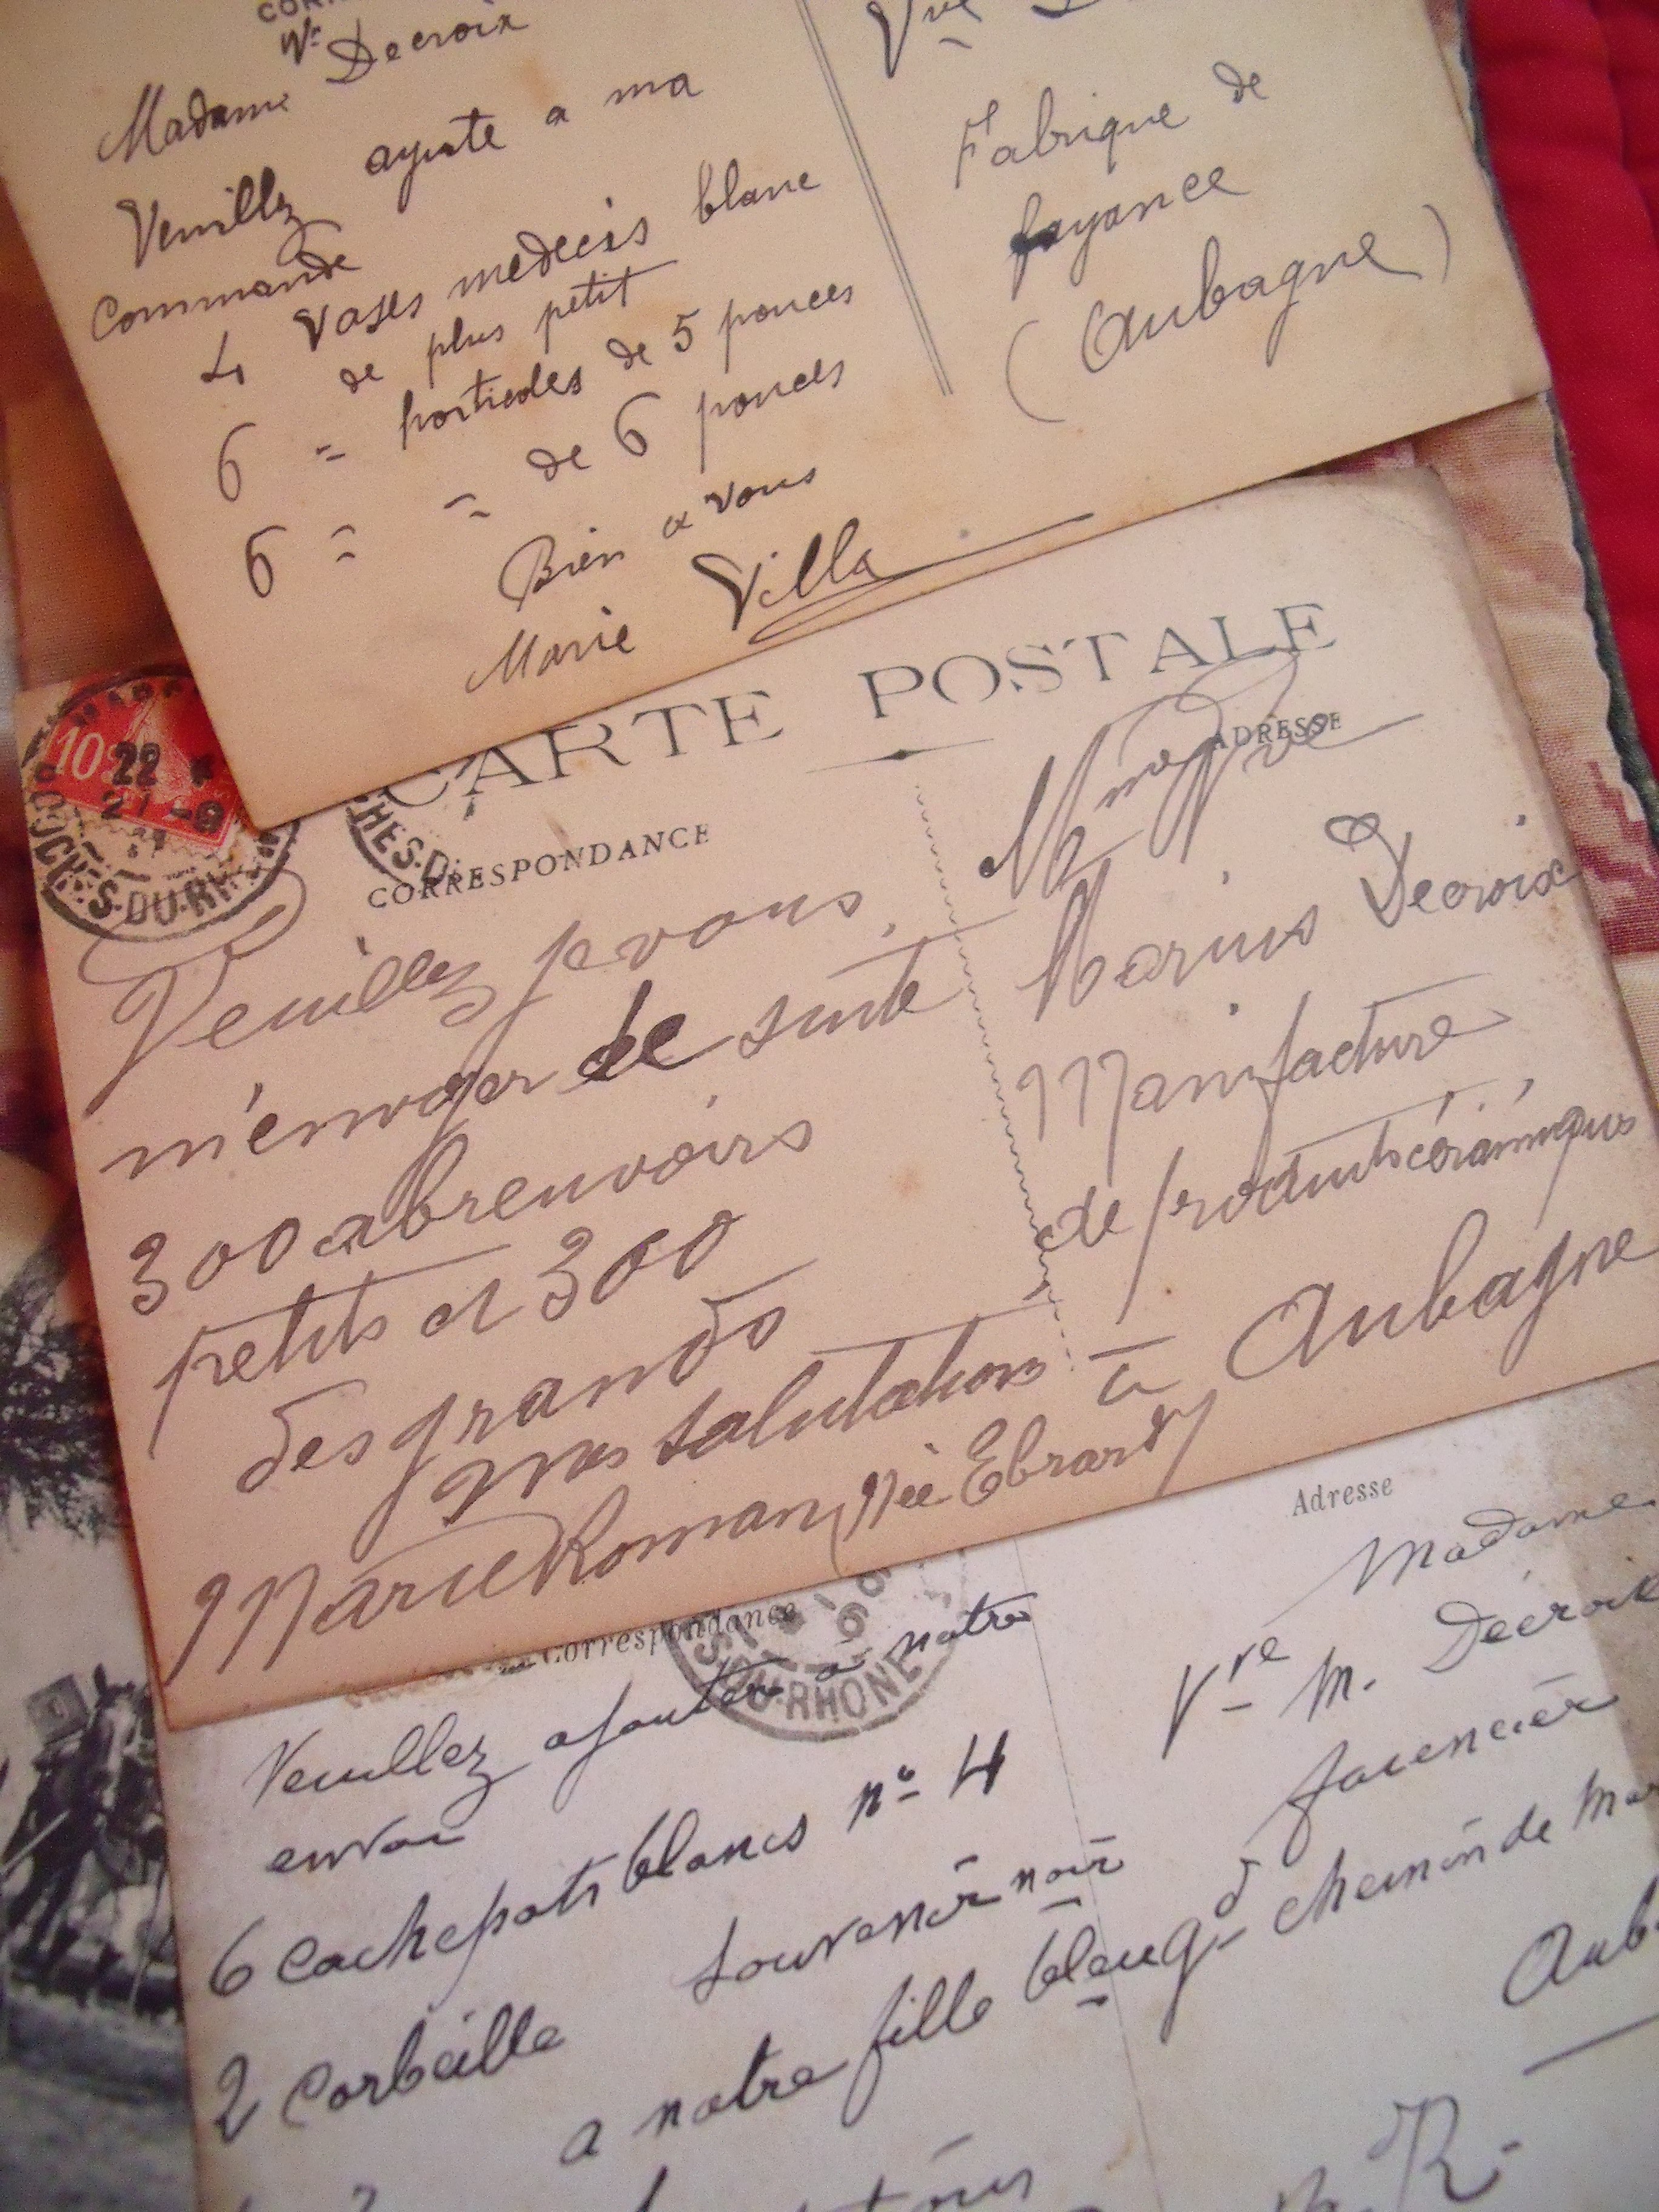 Vve Decroix
Madame
Veuillez ajoute a ma
Commande
4 vases medecis blanc
de plus petit
6 = porticoles de 5 pouces
6 = = de 6 pouces
Bien a vous
Marie Villa
Vve
Fabrique de
fayance
(Aubagne)
CARTE POSTALE
CORRESPONDANCE
ADRESSE
10
22
BOUCHES-DU-RH
HES-D
Veuillez je vous
m'envoyer de suite
300 abreuvoirs
petits et 300
des grands
mes salutations
Marie Roman née Ebrard
Mme Vve
Marius Decroix
Manifacture
de produits céramiques
à Aubagne
Correspondance
DU-RHONE
Veuillez ajouter à notre
envoi
6 cachepots blancs no 4
2 corbeille souvenir noir
a notre fille bleu
Adresse
Madame
Vve M. Décroix
faiencier
chemin de
Aub
R.